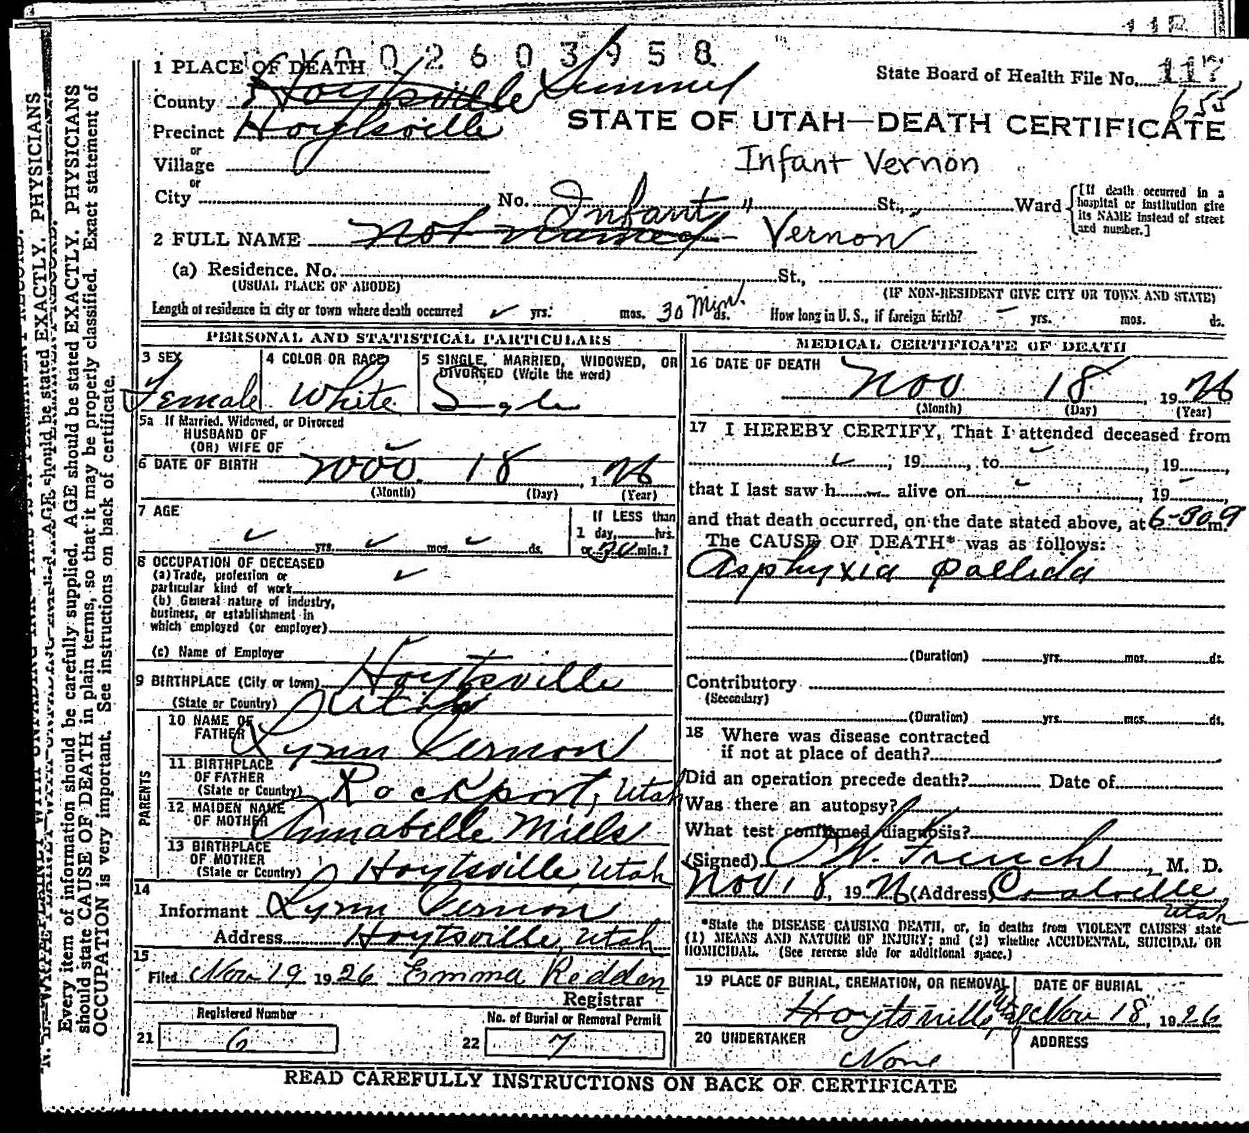 0 0 2 6 0 3 9 5 8
1 PLACE OF DEATH
State Board of Health File No. 117
655
County Hoytsville Summit
Precinct Hoytsville
STATE OF UTAH—DEATH CERTIFICATE
or
Village
Infant Vernon
or
City No. St., Ward
[If death occurred in a hospital or institution give its NAME instead of street and number.]
Infant "
2 FULL NAME Not Named Vernon
(a) Residence. No. St.,
(USUAL PLACE OF ABODE) (IF NON-RESIDENT GIVE CITY OR TOWN AND STATE)
Length of residence in city or town where death occurred yrs. mos. 30 Min. ds. How long in U.S., if foreign birth? yrs. mos. ds.
PERSONAL AND STATISTICAL PARTICULARS
3 SEX
Female
4 COLOR OR RACE
White
5 SINGLE, MARRIED, WIDOWED, OR DIVORCED (Write the word)
Single
5a If Married, Widowed, or Divorced
HUSBAND OF
(OR) WIFE OF
6 DATE OF BIRTH Nov. 18, 1926
(Month) (Day) (Year)
7 AGE
yrs. mos. ds.
If LESS than
1 day, hrs.
or 30 min.?
8 OCCUPATION OF DECEASED
(a) Trade, profession or
particular kind of work
(b) General nature of industry,
business, or establishment in
which employed (or employer)
(c) Name of Employer
9 BIRTHPLACE (City or town) Hoytsville
(State or Country) Utah
PARENTS
10 NAME OF
FATHER Lynn Vernon
11 BIRTHPLACE
OF FATHER
(State or Country) Rockport, Utah
12 MAIDEN NAME
OF MOTHER Annabelle Mills
13 BIRTHPLACE
OF MOTHER
(State or Country) Hoytsville, Utah
14
Informant Lynn Vernon
Address Hoytsville, Utah
15
Filed Nov 19 1926 Emma Redden
Registrar
Registered Number
21 6
No. of Burial or Removal Permit
22 7
MEDICAL CERTIFICATE OF DEATH
16 DATE OF DEATH
Nov 18, 1926
(Month) (Day) (Year)
17 I HEREBY CERTIFY, That I attended deceased from
, 19 , to , 19 ,
that I last saw h alive on , 19 ,
and that death occurred, on the date stated above, at 6-30 m.
The CAUSE OF DEATH* was as follows:
Asphyxia pallida
(Duration) yrs. mos. ds.
Contributory
(Secondary)
(Duration) yrs. mos. ds.
18 Where was disease contracted
if not at place of death?
Did an operation precede death? Date of
Was there an autopsy?
What test confirmed diagnosis?
(Signed) French, M. D.
Nov 18, 1926 (Address) Coalville
Utah
*State the DISEASE CAUSING DEATH, or, in deaths from VIOLENT CAUSES state
(1) MEANS AND NATURE OF INJURY; and (2) whether ACCIDENTAL, SUICIDAL OR
HOMICIDAL. (See reverse side for additional space.)
19 PLACE OF BURIAL, CREMATION, OR REMOVAL
Hoytsville, Utah
DATE OF BURIAL
Nov 18, 1926
20 UNDERTAKER
None
ADDRESS
READ CAREFULLY INSTRUCTIONS ON BACK OF CERTIFICATE
Every item of information should be carefully supplied. AGE should be stated EXACTLY. PHYSICIANS
should state CAUSE OF DEATH in plain terms, so that it may be properly classified. Exact statement of
OCCUPATION is very important. See instructions on back of certificate.